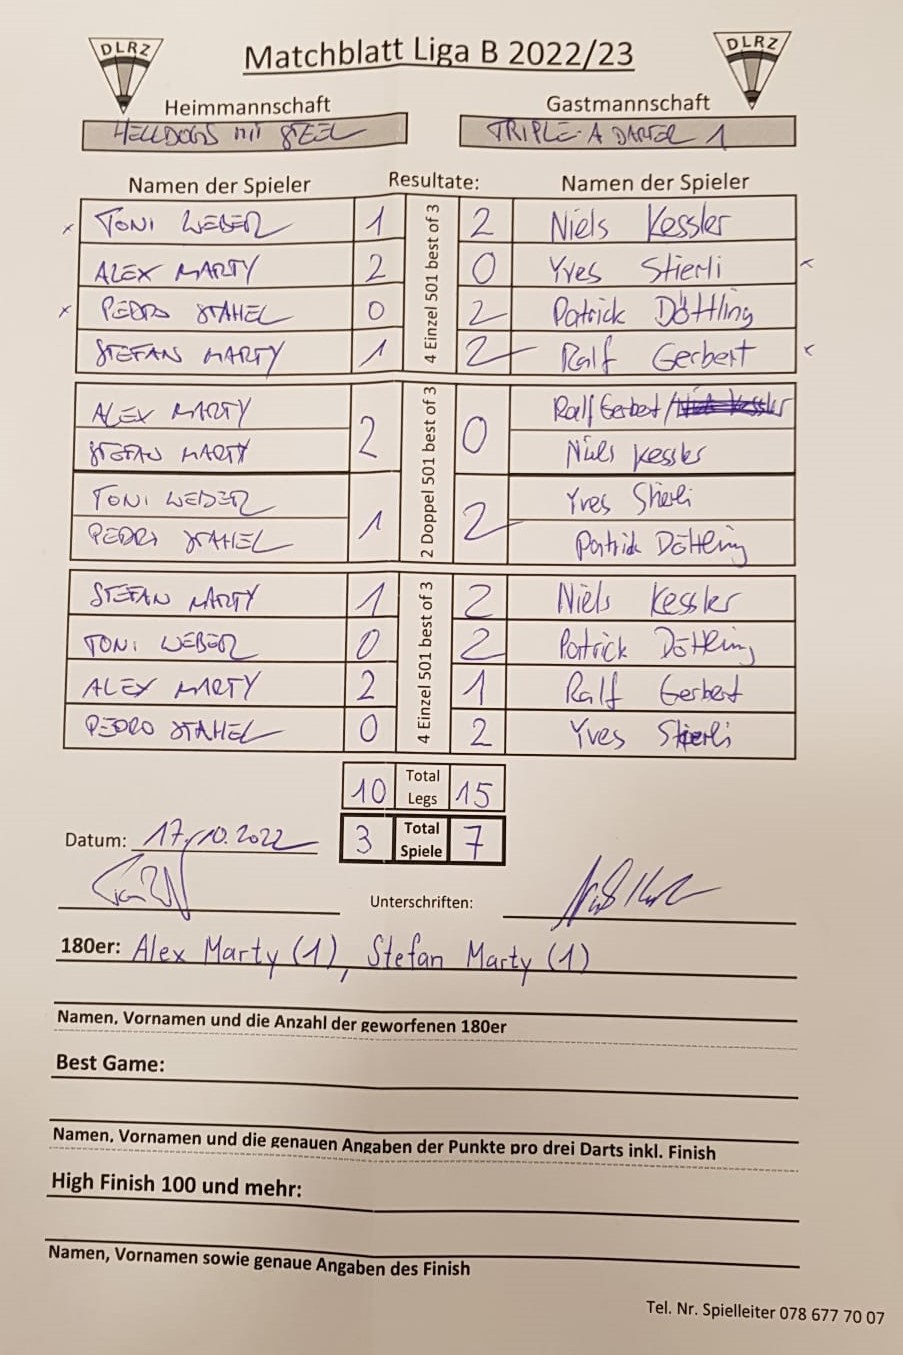 DLRZ Matchblatt Liga B 2022/23 DLRZ
Heimmannschaft Gastmannschaft
HELLDOGS mit STEEL TRIPLE-A DARTER 1
Namen der Spieler Resultate: Namen der Spieler
4 Einzel 501 best of 3
x TONI WEBER 1 2 Niels Kessler
ALEX MARTY 2 0 Yves Stierli x
x PEDRO STAHEL 0 2 Patrick Döttling
STEFAN MARTY 1 2 Ralf Gerbert x
2 Doppel 501 best of 3
ALEX MARTY 2 0 Ralf Gerbert /
STEFAN MARTY Niels Kessler
TONI WEBER 1 2 Yves Stierli
PEDRO STAHEL Patrick Döttling
4 Einzel 501 best of 3
STEFAN MARTY 1 2 Niels Kessler
TONI WEBER 0 2 Patrick Döttling
ALEX MARTY 2 1 Ralf Gerbert
PEDRO STAHEL 0 2 Yves Stierli
10 Total Legs 15
Datum: 17.10.2022 3 Total Spiele 7
Unterschriften:
180er: Alex Marty (1), Stefan Marty (1)
Namen, Vornamen und die Anzahl der geworfenen 180er
Best Game:
Namen, Vornamen und die genauen Angaben der Punkte pro drei Darts inkl. Finish
High Finish 100 und mehr:
Namen, Vornamen sowie genaue Angaben des Finish
Tel. Nr. Spielleiter 078 677 70 07